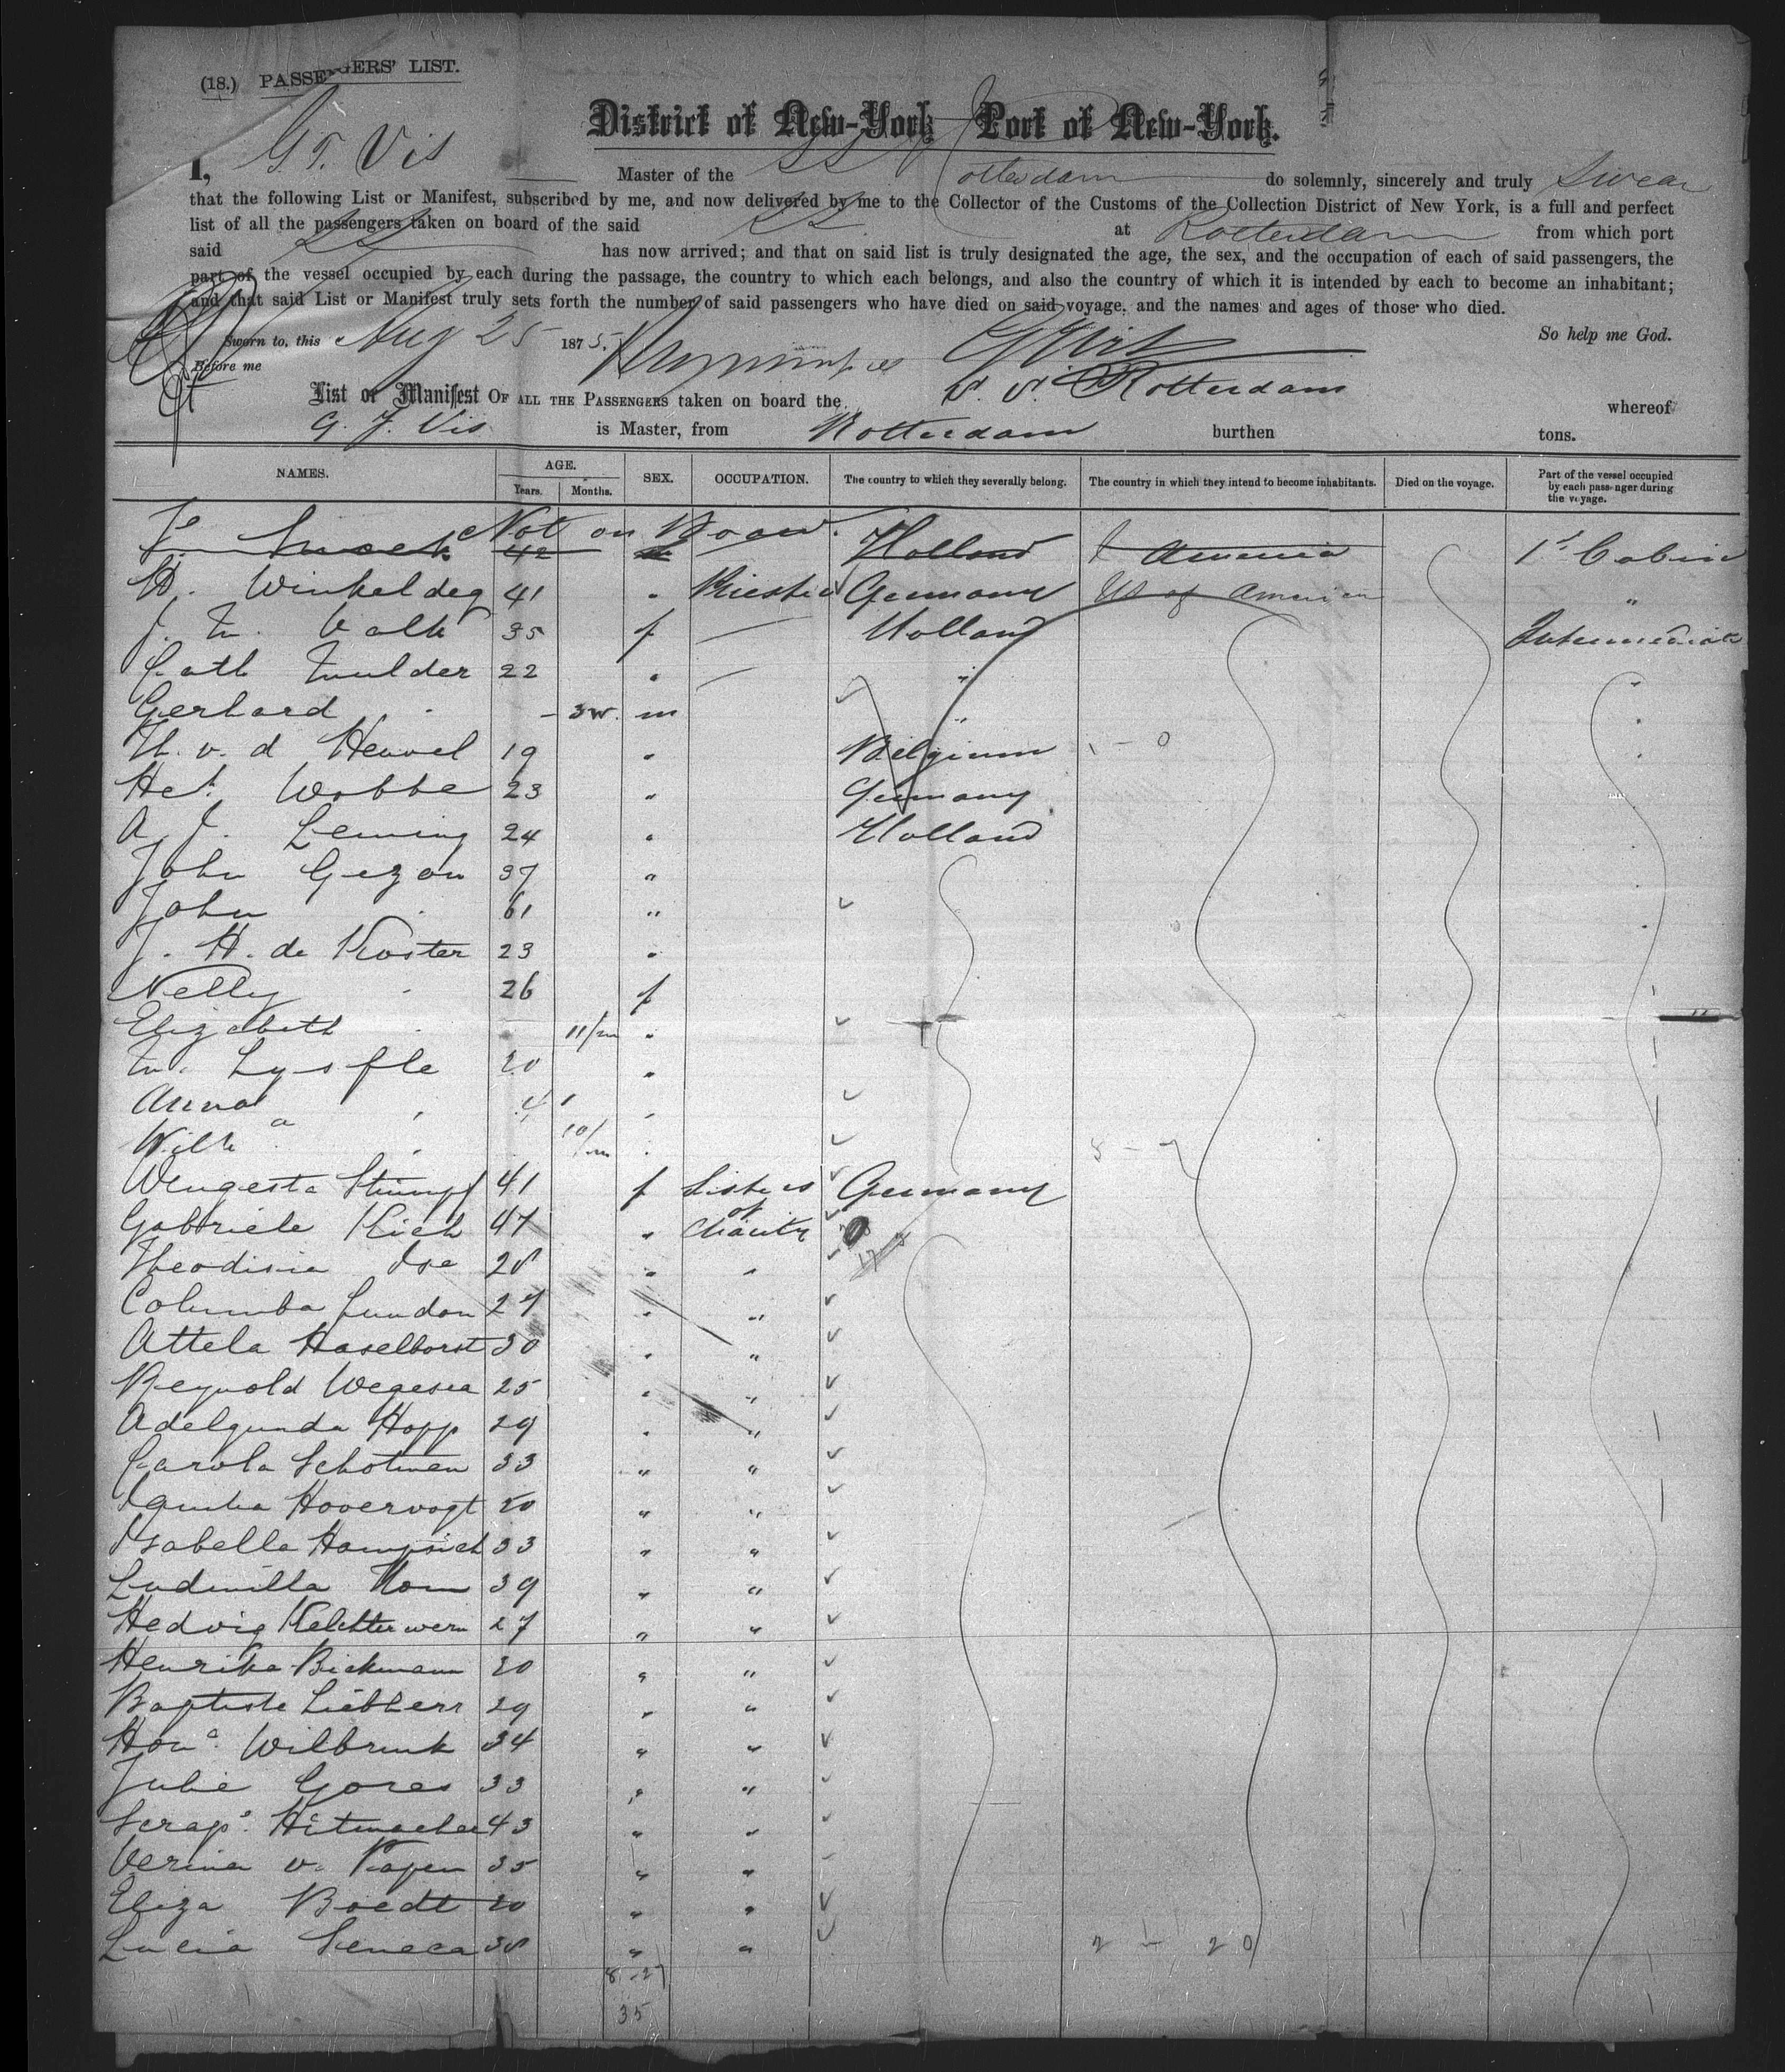 (18.) PASSENGERS' LIST.
District of New-York Port of New-York.
I, G. J. Vis Master of the SS Rotterdam do solemnly, sincerely and truly Swear
that the following List or Manifest, subscribed by me, and now delivered by me to the Collector of the Customs of the Collection District of New York, is a full and perfect
list of all the passengers taken on board of the said SS. at Rotterdam from which port
said SS has now arrived; and that on said list is truly designated the age, the sex, and the occupation of each of said passengers, the
part of the vessel occupied by each during the passage, the country to which each belongs, and also the country of which it is intended by each to become an inhabitant;
and that said List or Manifest truly sets forth the number of said passengers who have died on said voyage, and the names and ages of those who died.
So help me God.
Sworn to, this Aug 25 1875. GJVis
Before me
List or Manifest OF ALL THE PASSENGERS taken on board the S. S. Rotterdam whereof
G. J. Vis is Master, from Rotterdam burthen tons.
NAMES. AGE. Years. Months. SEX. OCCUPATION. The country to which they severally belong. The country in which they intend to become inhabitants. Died on the voyage. Part of the vessel occupied by each passenger during the voyage.
Not on Board. 42 Holland America 1st Cabin
H. Winkeldeg 41 " Priester Germany US of America "
J. M. Valk 35 f — Holland Intermediate
Cath Mulder 22 " — " "
Gerhard " - 3w. m " "
Th. v. d Heuvel 19 " Belgium 1 - 0
Het. Wobbe 23 " Germany
A. J. Leming 24 " Holland
John Gezon 37 "
John " 61 "
J. H. de Koster 23 "
Nelly " 26 f
Elizabeth " 11/m "
M. 20 "
Anna " 4 "
Wilh a " 10/m "
8 - 7
Wengesta Stumpf 41 f Sisters Germany
of
Gabriele Rich 47 " Charity
Theodisia Ise 28 " "
Columba Lundon 27 " "
Attela Haselhorst 30 " "
Reynold Wegesea 25 " "
Adelgunda Hopp 29 " "
Carola Schotmen 33 " "
Hovervogt 20 " "
Isabella 33 " "
Ludmilla Horn 39 " "
Hedvig 27 " "
Henrika Bickmann 20 " "
Baptiste Liebherr 29 " "
Hona. Wilbrink 34 " "
Julie Gores 33 " "
Serap. Hutmacher 43 " "
Verina v. Papen 35 " "
Eliza Boedt 20 " "
Lucia Seneca 38 " "
2 - 20
8 - 27
35